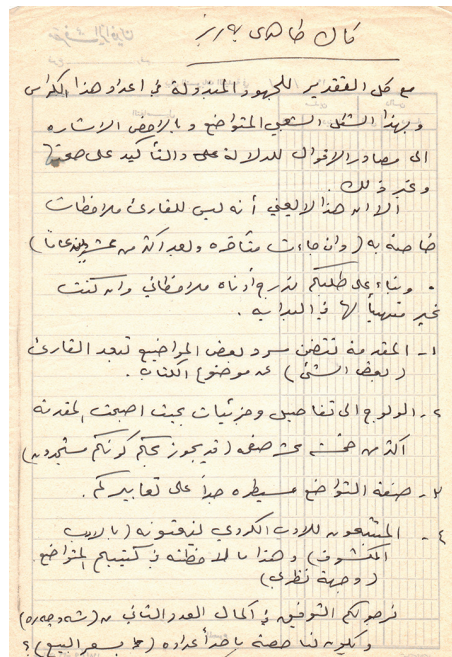 كاك طاهر ى به رز
مع كل التقدير للجهود المبذولة في اعداد هذا الكراس
وبهذا الشكل الشعبي المتواضع وبالاخص الاشاره
الى مصادر الاقوال للدلالة على والتأكيد على صحتها
وغير ذلك .
الا ان هذا لا يعني أنه ليس للقارئ ملاحظات
خاصة به ( وان جاءت متأخره وبعد اكثر من عشرين عاماً )
. وبناء على طلبكم ندرج أدناه ملاحظاتي وان كنت
غير متهيأ لها في البدايه .
١- المقدمة تتضمن سرد بعض المواضيع تبعد القارئ
( بعض الشئ ) عن موضوع الكتاب .
٢- الولوج الى تفاصيل وجزئيات بحيث اصبحت المقدمة
اكثر من خمسة عشر صفحه ( قد يجوز بحكم كونكم
٣- صفة التواضع مسيطره جداً على تعابيركم .
٤- المتتبعون للادب الكردي ينعتونه ( بالادب
المكشوف ) وهذا ما لاحظته في كتيبكم المتواضع
( وجهة نظري )
نرجو لكم التوفيق في اكمال العدد الثاني من
ويكون لنا حصة باحد أعداده ( بسعر البيع ) ؟